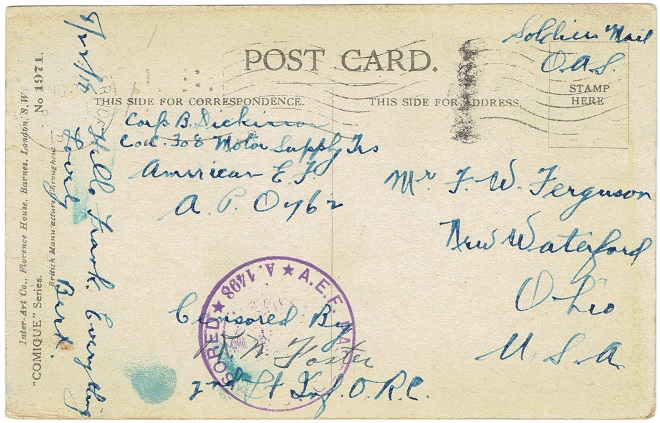 Soldiers Mail
O.A.S.
POST CARD.
THIS SIDE FOR CORRESPONDENCE.
THIS SIDE FOR ADDRESS.
STAMP
HERE
Corp B. Dickinson
Co. 308 Motor Supply Trs
American E F
A. P. O 762
Mr F. W. Ferguson
New Waterford
Ohio
U. S. A.
Censored By
Foster
2nd Lt Inf. O. R. C.
★ A. 1498 ★ A.E.F.
Hello Frank. Everything
Lovely
Bert.
Inter-Art Co., Florence House, Barnes, London, S.W.
British Manufacture throughout
"COMIQUE" Series.
No 1971.